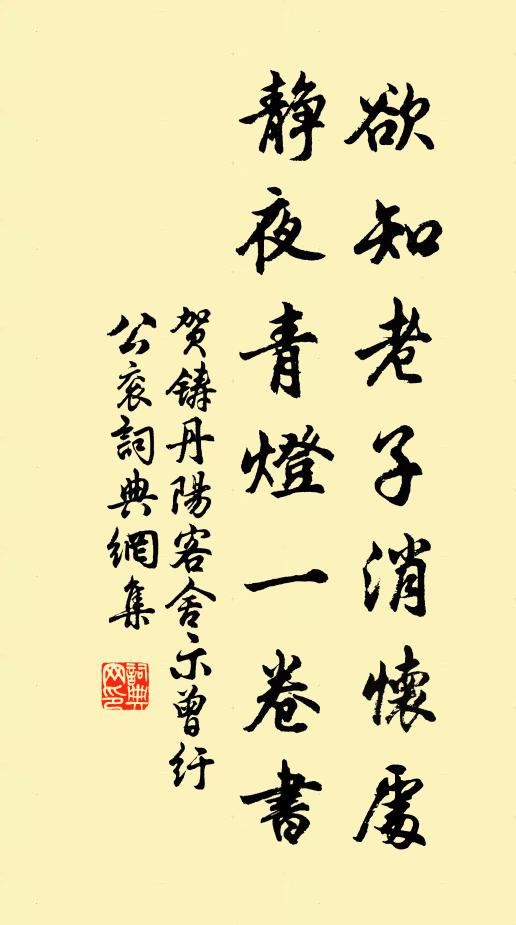 欲知老子消懷處
靜夜青燈一卷書
賀鑄丹陽客舍示曾紆
公衮詞典網集
詞典
网印